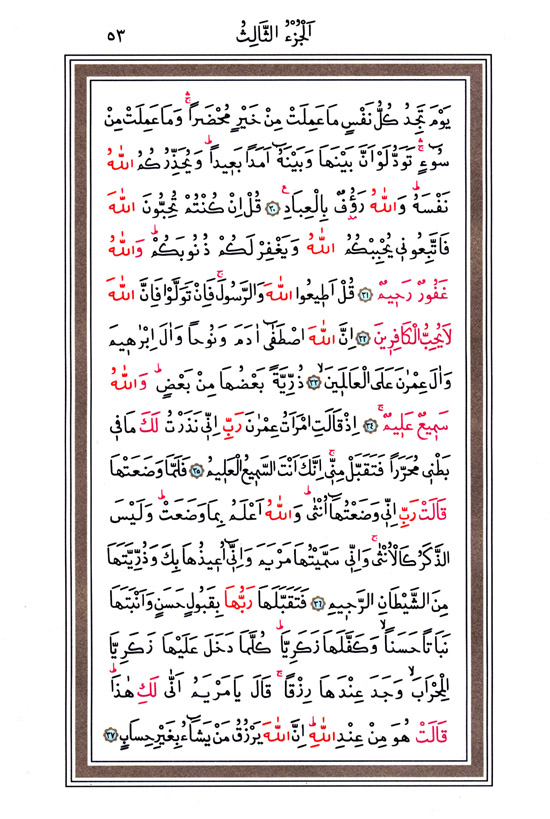 اَلْجُزْءُ الثَّالِثُ ٥٣
يَوْمَ تَجِدُ كُلُّ نَفْسٍ مَا عَمِلَتْ مِنْ خَيْرٍ مُحْضَراًۚ وَمَا عَمِلَتْ مِنْ
سُٓوءٍۚ تَوَدُّ لَوْ اَنَّ بَيْنَهَا وَبَيْنَهُٓ اَمَداً بَعٖيداًؕ وَيُحَذِّرُكُمُ اللّٰهُ
نَفْسَهُؕ وَاللّٰهُ رَؤُ۫فٌ بِالْعِبَادِ۟ ﴿٣٠﴾ قُلْ اِنْ كُنْتُمْ تُحِبُّونَ اللّٰهَ
فَاتَّبِعُونٖي يُحْبِبْكُمُ اللّٰهُ وَيَغْفِرْ لَكُمْ ذُنُوبَكُمْؕ وَاللّٰهُ
غَفُورٌ رَحٖيمٌ ﴿٣١﴾ قُلْ اَطٖيعُوا اللّٰهَ وَالرَّسُولَۚ فَاِنْ تَوَلَّوْا فَاِنَّ اللّٰهَ
لَا يُحِبُّ الْكَافِرٖينَ ﴿٣٢﴾ اِنَّ اللّٰهَ اصْطَفٰٓى اٰدَمَ وَنُوحاً وَاٰلَ اِبْرٰهٖيمَ
وَاٰلَ عِمْرٰنَ عَلَى الْعَالَمٖينَۙ ﴿٣٣﴾ ذُرِّيَّةً بَعْضُهَا مِنْ بَعْضٍؕ وَاللّٰهُ
سَمٖيعٌ عَلٖيمٌۚ ﴿٣٤﴾ اِذْ قَالَتِ امْرَاَتُ عِمْرٰنَ رَبِّ اِنّٖي نَذَرْتُ لَكَ مَا فٖي
بَطْنٖي مُحَرَّراً فَتَقَبَّلْ مِنّٖيۚ اِنَّكَ اَنْتَ السَّمٖيعُ الْعَلٖيمُ ﴿٣٥﴾ فَلَمَّا وَضَعَتْهَا
قَالَتْ رَبِّ اِنّٖي وَضَعْتُهَٓا اُنْثٰىؕ وَاللّٰهُ اَعْلَمُ بِمَا وَضَعَتْؕ وَلَيْسَ
الذَّكَرُ كَالْاُنْثٰىۚ وَاِنّٖي سَمَّيْتُهَا مَرْيَمَ وَاِنّٖٓي اُعٖيذُهَا بِكَ وَذُرِّيَّتَهَا
مِنَ الشَّيْطَانِ الرَّجٖيمِ ﴿٣٦﴾ فَتَقَبَّلَهَا رَبُّهَا بِقَبُولٍ حَسَنٍ وَاَنْبَتَهَا
نَبَاتاً حَسَناًۙ وَكَفَّلَهَا زَكَرِيَّاؕ كُلَّمَا دَخَلَ عَلَيْهَا زَكَرِيَّا
الْمِحْرَابَۙ وَجَدَ عِنْدَهَا رِزْقاًۚ قَالَ يَا مَرْيَمُ اَنّٰى لَكِ هٰذَاؕ
قَالَتْ هُوَ مِنْ عِنْدِ اللّٰهِؕ اِنَّ اللّٰهَ يَرْزُقُ مَنْ يَشَٓاءُ بِغَيْرِ حِسَابٍ ﴿٣٧﴾